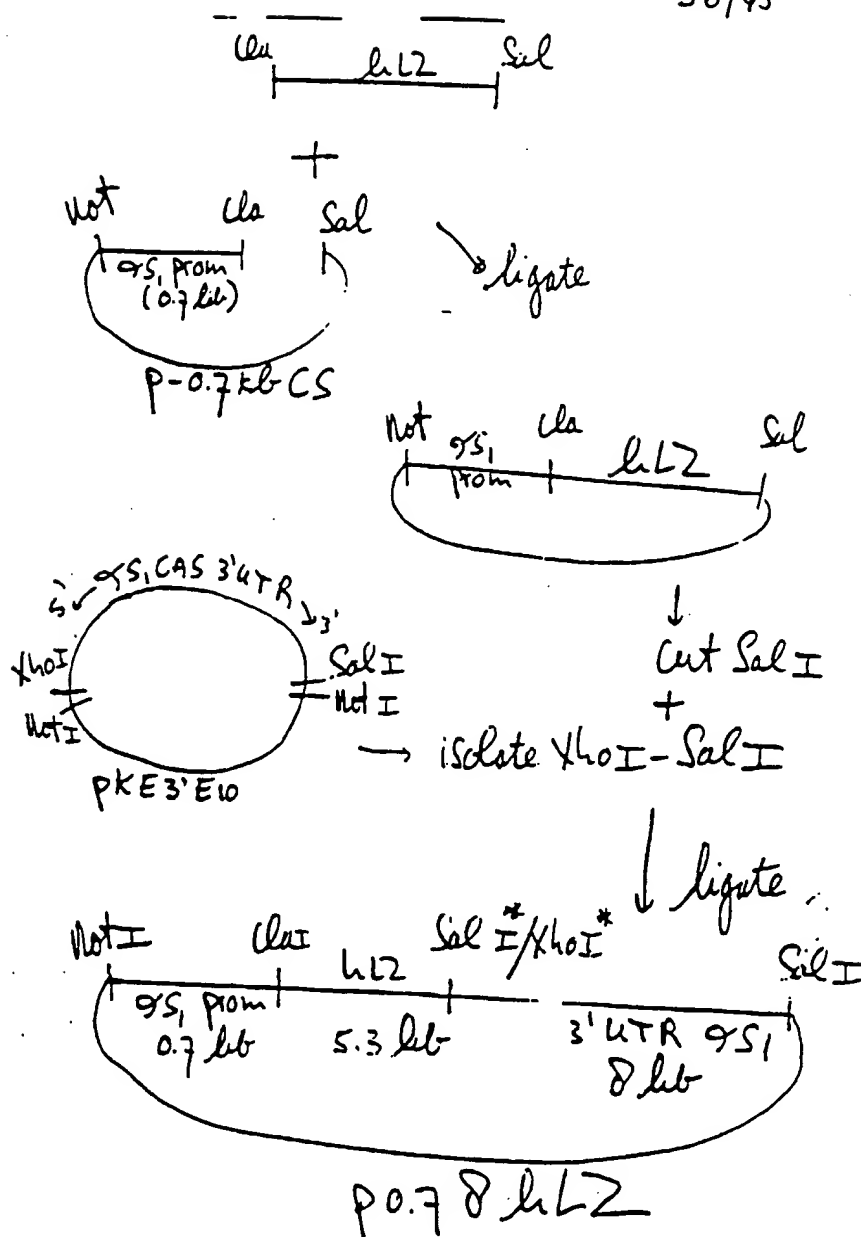 Cla hLZ Sal
+
Not Cla Sal
αS₁ prom
(0.7 kb)
ligate
p-0.7kb CS
Not αS₁ prom Cla hLZ Sal
5' αS₁ CAS 3'UTR 3'
XhoI
NotI
Sal I
Not I
pKE3'E10
Cut Sal I
+
isolate XhoI-Sal I
ligate
NotI ClaI Sal I*/XhoI* Sal I
αS₁ prom
0.7 kb
hLZ
5.3 kb
3' UTR αS₁
8 kb
p0.7 8 hLZ